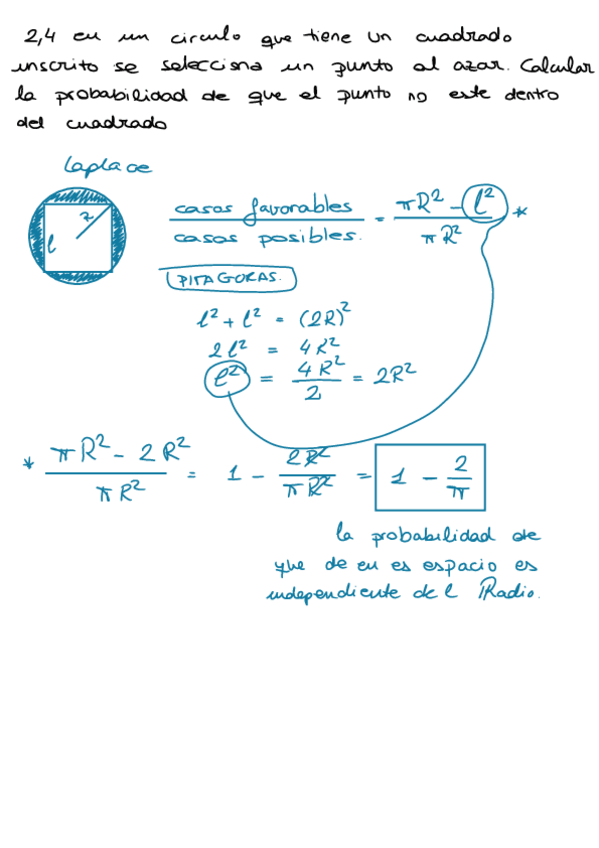 2,4 en un circulo que tiene un cuadrado
inscrito se selecciona un punto al azar. Calcular
la probabilidad de que el punto no este dentro
del cuadrado
Laplace
r
l
casos favorables / casos posibles. = πR² - l² / πR² *
PITAGORAS.
l² + l² = (2R)²
2l² = 4R²
l² = 4R² / 2 = 2R²
* πR² - 2R² / πR² = 1 - 2R² / πR² = 1 - 2/π
la probabilidad de
que de en es espacio es
independiente del Radio.